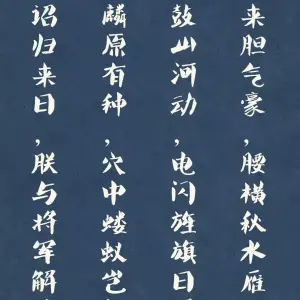 来胆气豪，腰横秋水雁
鼓山河动，电闪旌旗日
麟原有种，穴中蝼蚁岂
诏归来日，朕与将军解